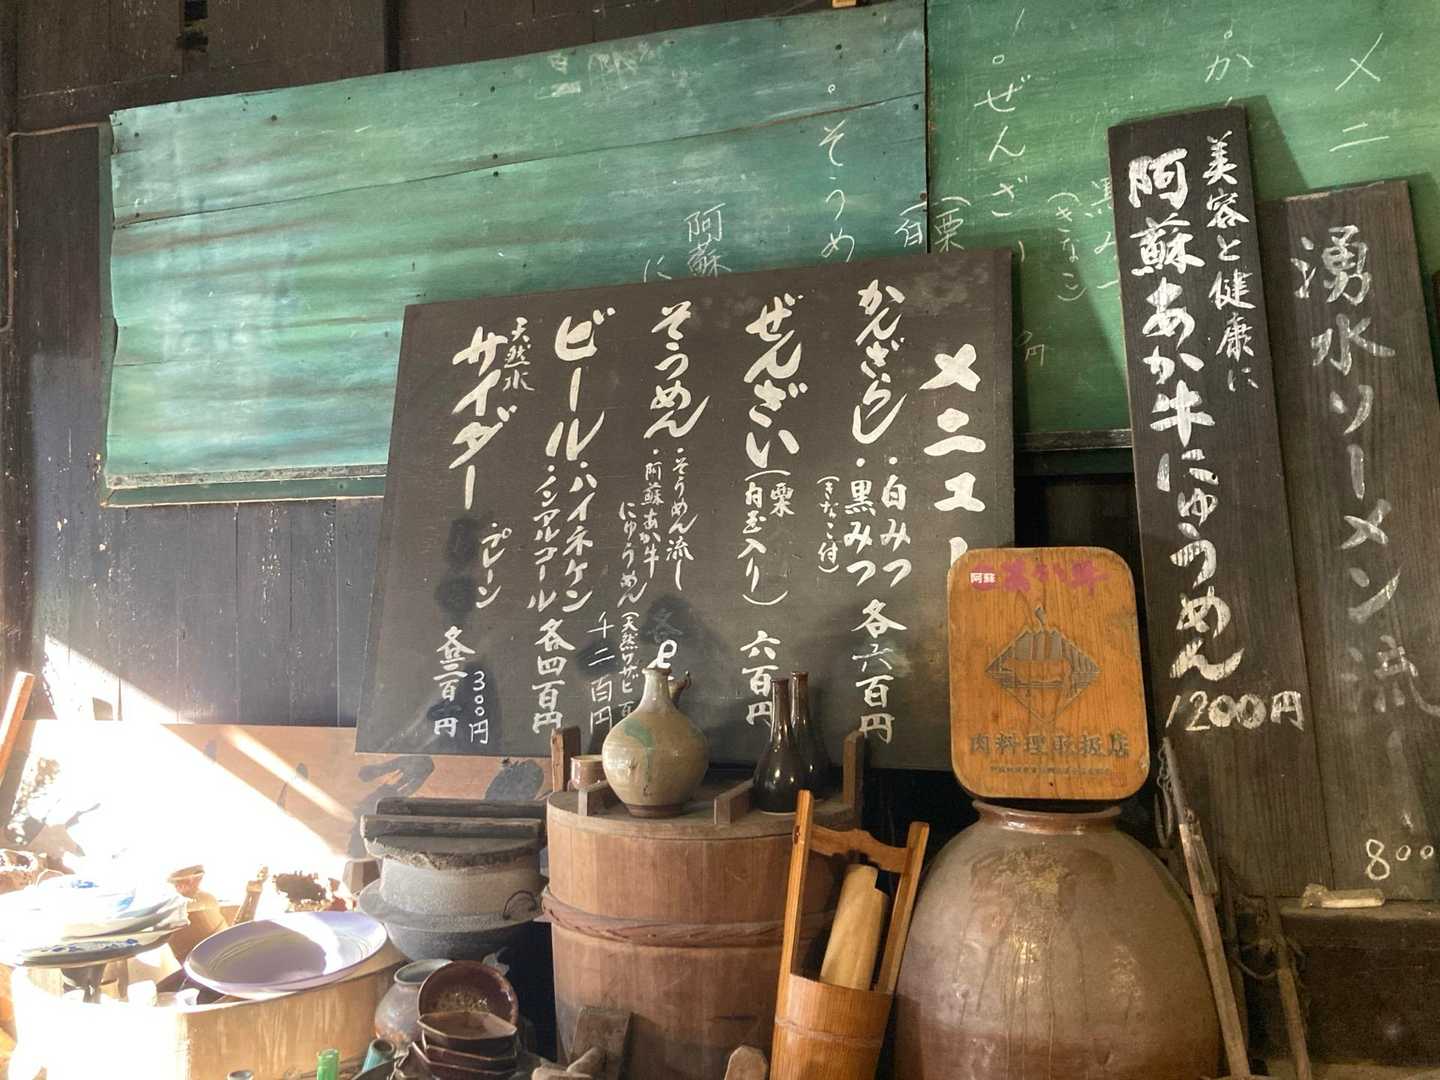 メニュー
かんざらし
・白みつ
・黒みつ
(きなこ付)
各六百円
ぜんざい
(栗
白玉入り)
六百円
そうめん
・そうめん流し
・阿蘇あか牛
にゅうめん
(天然ワサビ
千二百円
ビール
・ハイネケン
・ノンアルコール
各四百円
天然水
サイダー
プレーン
各三百円
300円
美容と健康に
阿蘇あか牛にゅうめん
1200円
湧水ソーメン流し
800
阿蘇
あか牛
肉料理取扱店
メニ
。か
黒み
(きなこ)
円
。ぜんざ
(栗
(白
。そうめ
阿蘇
に